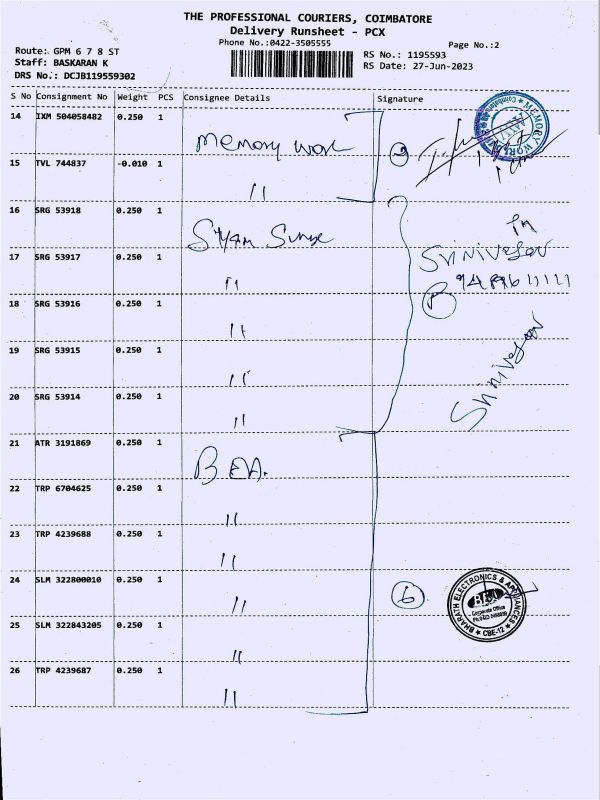 THE PROFESSIONAL COURIERS, COIMBATORE
Delivery Runsheet - PCX
Phone No.:0422-3505555
Page No.:2
Route: GPM 6 7 8 ST
Staff: BASKARAN K
DRS No.: DCJB119559302
RS No.: 1195593
RS Date: 27-Jun-2023
S No Consignment No Weight PCS Consignee Details Signature
14 IXM 504058482 0.250 1
memory worl
15 TVL 744837 -0.010 1
"
16 SRG 53918 0.250 1
17 SRG 53917 0.250 1
"
Srinivasan
18 SRG 53916 0.250 1
"
19 SRG 53915 0.250 1
"
Srinivasan
20 SRG 53914 0.250 1
"
21 ATR 3191869 0.250 1
BEA.
22 TRP 6704625 0.250 1
"
23 TRP 4239688 0.250 1
"
24 SLM 322800010 0.250 1
"
6
BHARATH ELECTRONICS & APPLIANCES
BEA
Corporate Office
CBE-12
25 SLM 322843205 0.250 1
"
26 TRP 4239687 0.250 1
"